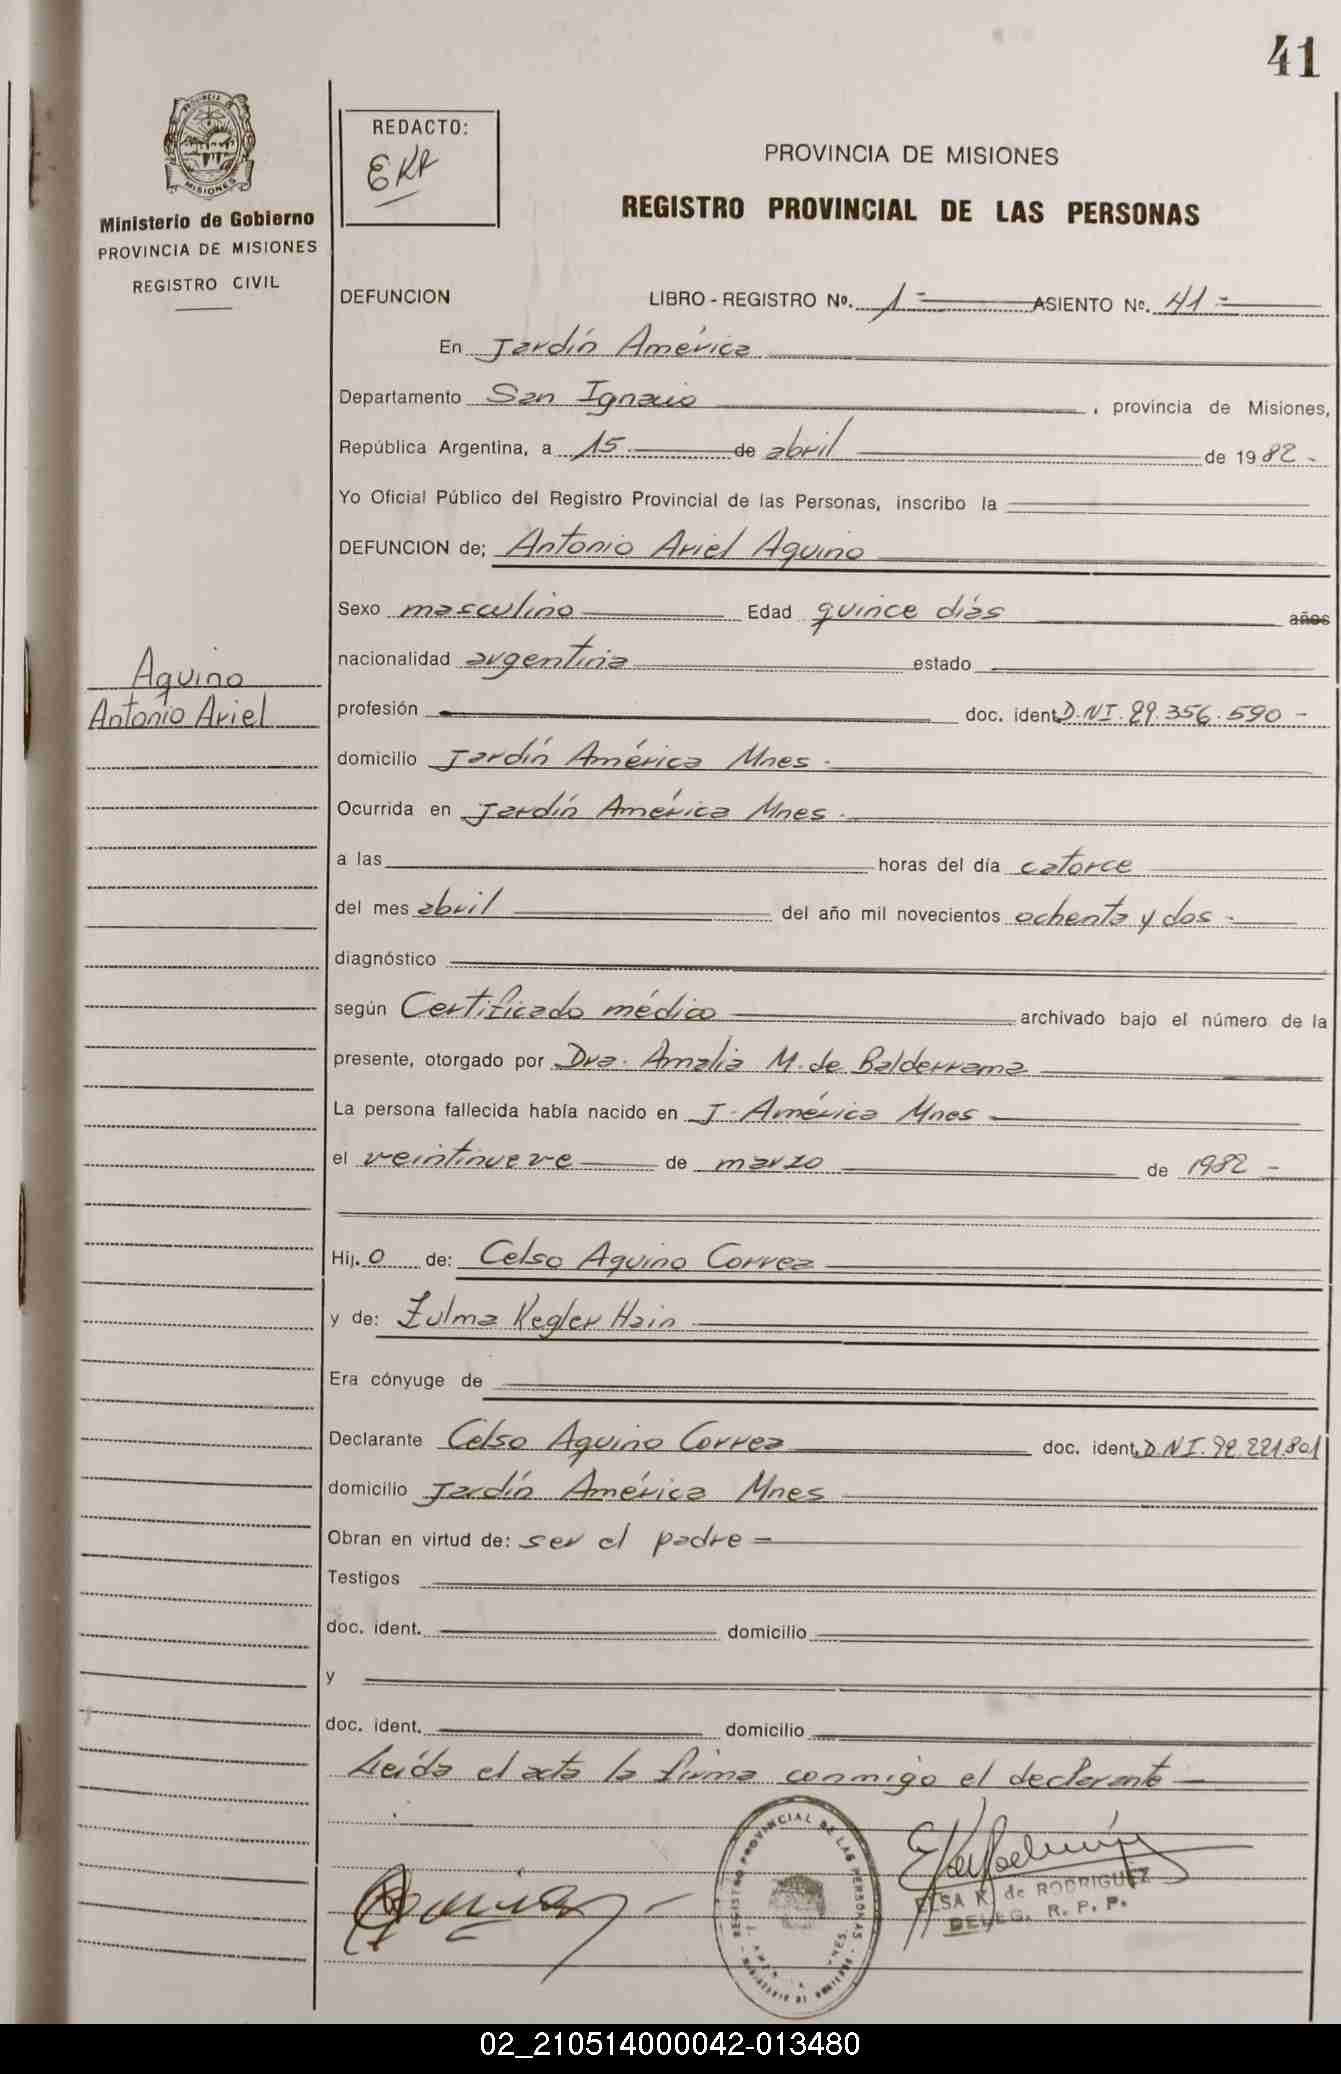 41
PROVINCIA DE
MISIONES
Ministerio de Gobierno
PROVINCIA DE MISIONES
REGISTRO CIVIL
REDACTO:
EKR
PROVINCIA DE MISIONES
REGISTRO PROVINCIAL DE LAS PERSONAS
DEFUNCION LIBRO - REGISTRO Nº. 1 = ASIENTO Nº. 41 =
En Jardín América
Departamento San Ignacio , provincia de Misiones,
República Argentina, a 15 de abril de 1982 -
Yo Oficial Público del Registro Provincial de las Personas, inscribo la
DEFUNCION de; Antonio Ariel Aquino
Sexo masculino Edad quince días años
nacionalidad argentina estado
Aquino
Antonio Ariel
profesión doc. ident. D.N.I. 29.356.590 -
domicilio Jardín América Mnes -
Ocurrida en Jardín América Mnes -
a las horas del día catorce
del mes abril del año mil novecientos ochenta y dos -
diagnóstico
según Certificado médico archivado bajo el número de la
presente, otorgado por Dra. Amalia M. de Balderrama
La persona fallecida había nacido en J. América Mnes
el veintinueve de marzo de 1982 -
Hij.o de: Celso Aquino Correa
y de: Zulma Kegler Hain
Era cónyuge de
Declarante Celso Aquino Correa doc. ident. D.N.I. 92.221.801
domicilio Jardín América Mnes
Obran en virtud de: ser el padre -
Testigos
doc. ident. domicilio
y
doc. ident. domicilio
Leída el acta la firma conmigo el declarante
REGISTRO PROVINCIAL DE LAS PERSONAS
ELSA K. de RODRIGUEZ
DELEG. R. P. P.
02_210514000042-013480